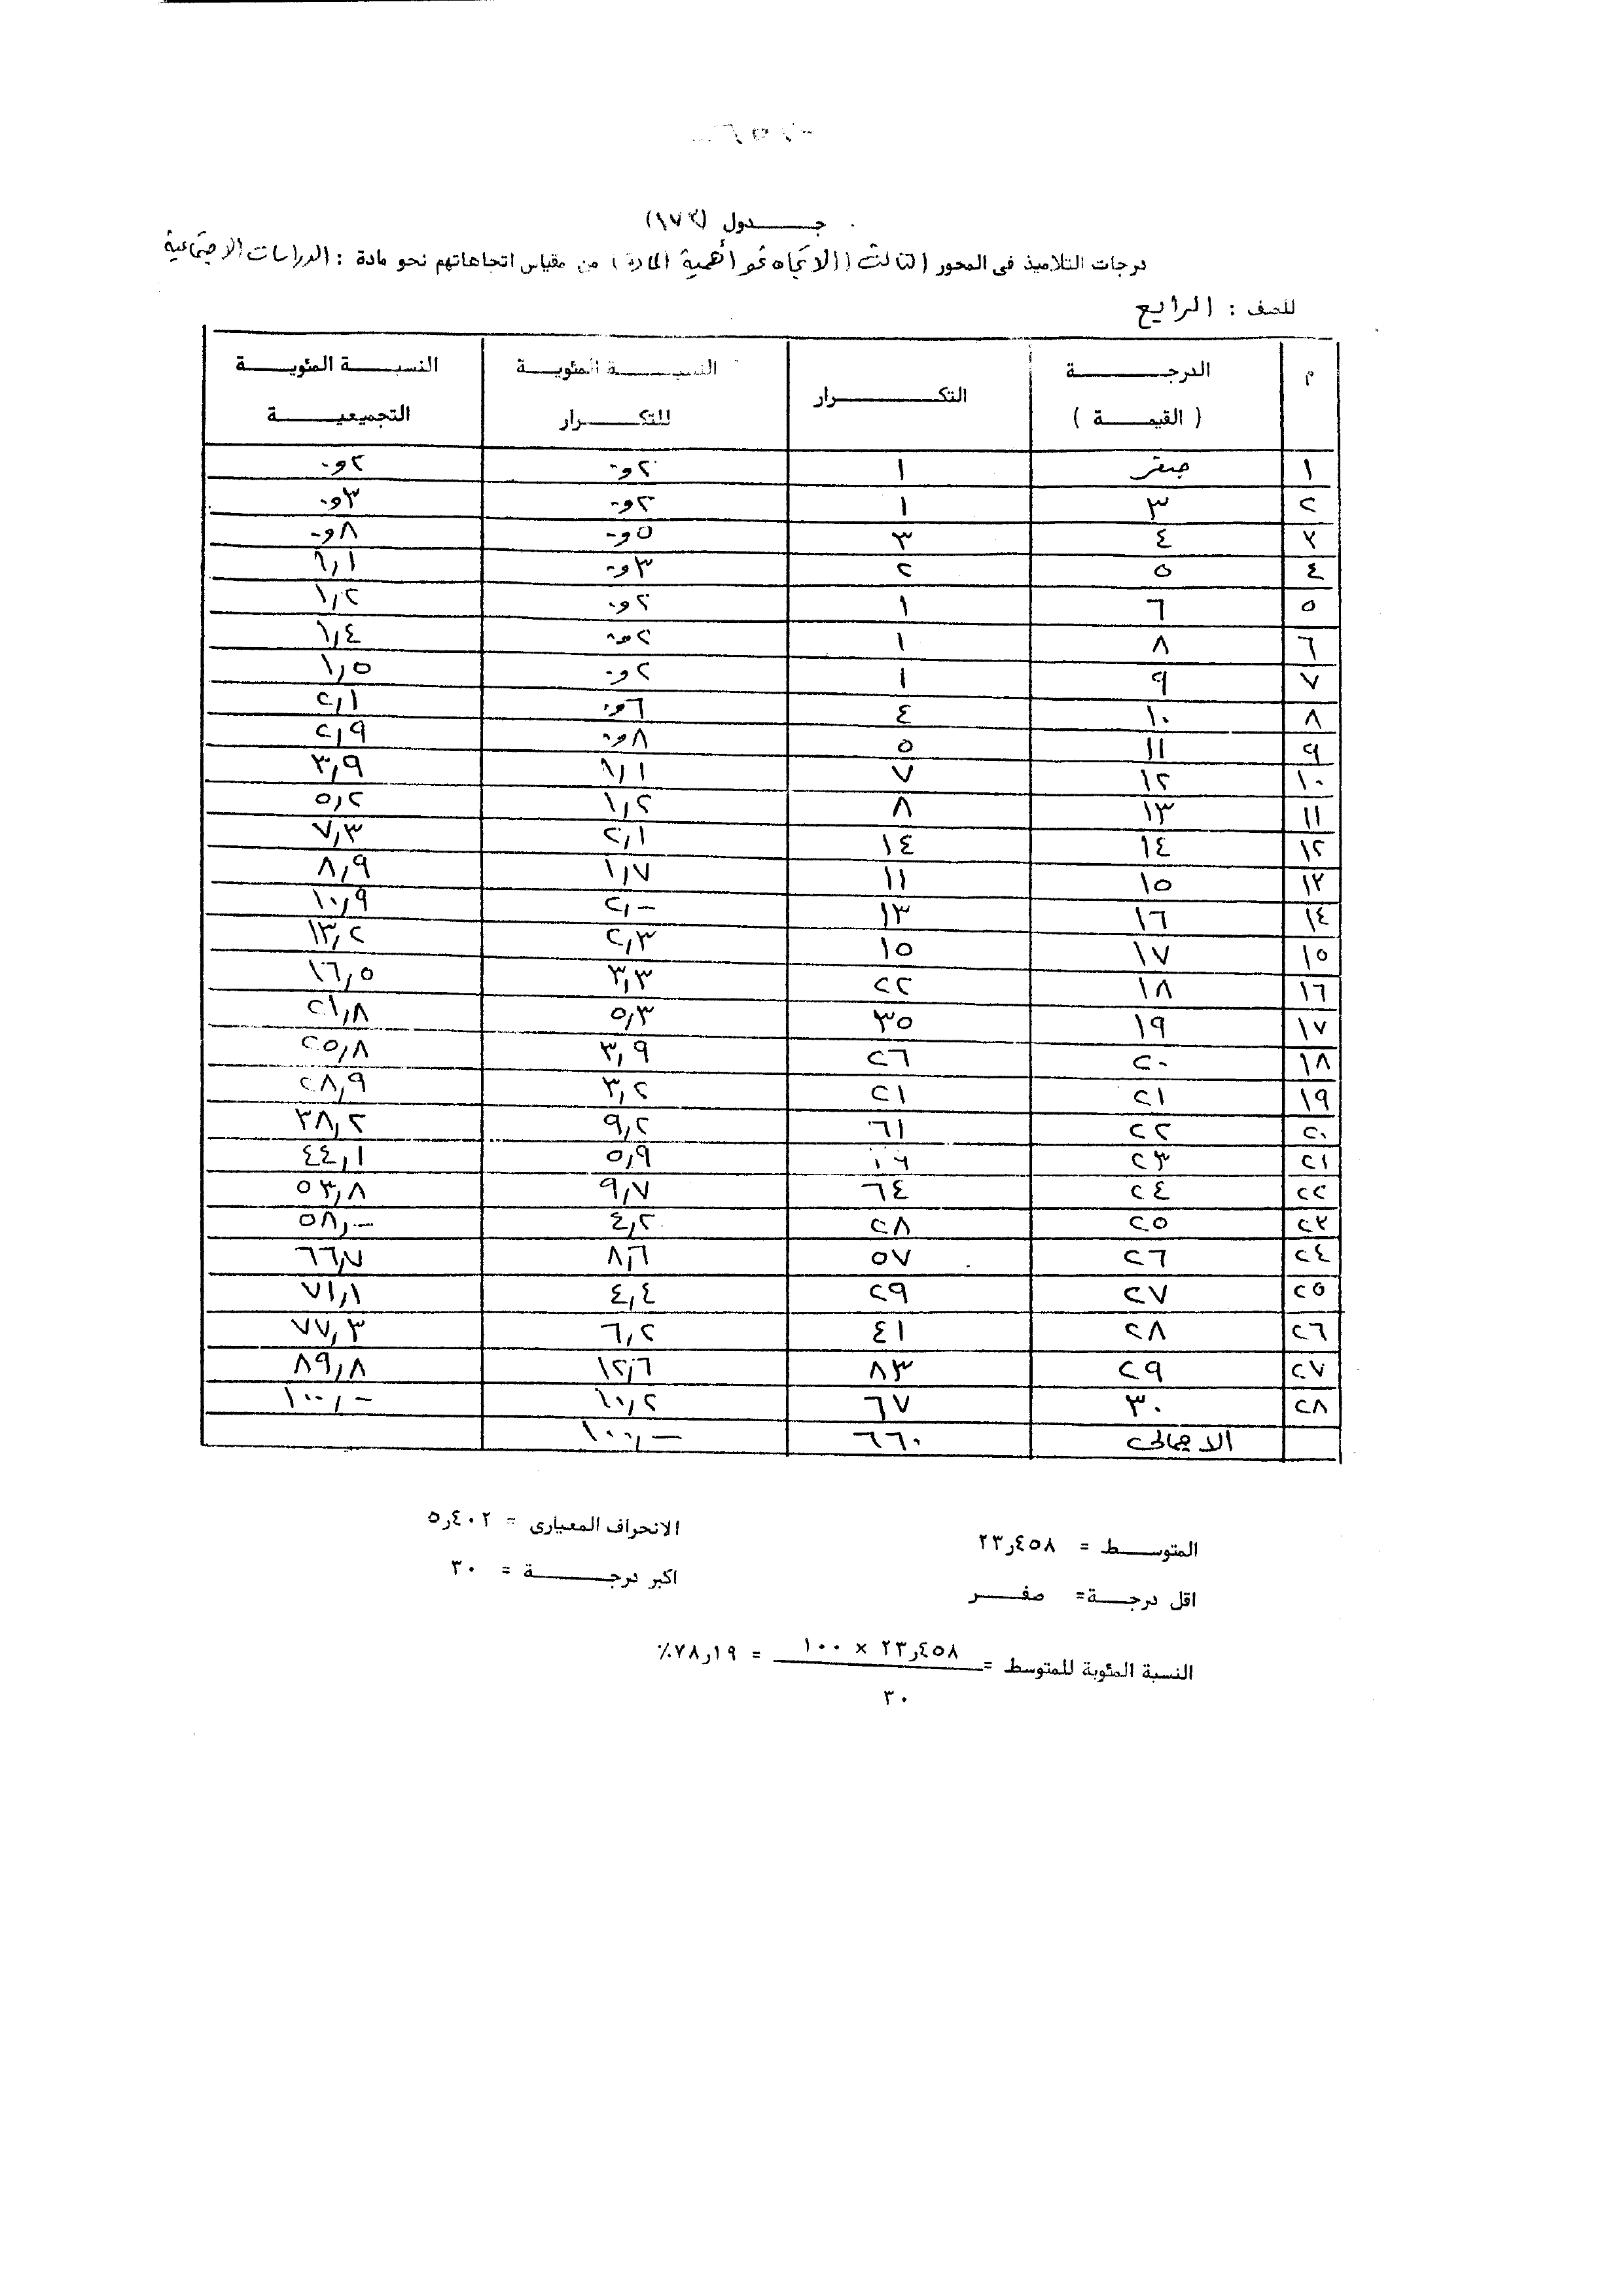 جدول (١٧٢)
درجات التلاميذ فى المحور (الثالث (الاتجاه نحو أهمية المادة) من مقياس اتجاهاتهم نحو مادة : الدراسات الاجتماعية
للصف : الرابع
م الدرجة (القيمة) التكرار النسبة المئوية للتكرار النسبة المئوية التجميعية
١ صفر ١ ٢و٠ ٢و٠
٢ ٣ ١ ٢و٠ ٣و٠
٣ ٤ ٣ ٥و٠ ٨و٠
٤ ٥ ٢ ٣و٠ ١,١
٥ ٦ ١ ٢و٠ ١,٢
٦ ٨ ١ ٢و٠ ١,٤
٧ ٩ ١ ٢و٠ ١,٥
٨ ١٠ ٤ ٦و٠ ٢,١
٩ ١١ ٥ ٨و٠ ٢,٩
١٠ ١٢ ٧ ١,١ ٣,٩
١١ ١٣ ٨ ١,٢ ٥,٢
١٢ ١٤ ١٤ ٢,١ ٧,٣
١٣ ١٥ ١١ ١,٧ ٨,٩
١٤ ١٦ ١٣ ٢,- ١٠,٩
١٥ ١٧ ١٥ ٢,٣ ١٣,٢
١٦ ١٨ ٢٢ ٣,٣ ١٦,٥
١٧ ١٩ ٣٥ ٥,٣ ٢١,٨
١٨ ٢٠ ٢٦ ٣,٩ ٢٥,٨
١٩ ٢١ ٢١ ٣,٢ ٢٨,٩
٢٠ ٢٢ ٦١ ٩,٢ ٣٨,٢
٢١ ٢٣ ٥,٩ ٤٤,١
٢٢ ٢٤ ٦٤ ٩,٧ ٥٣,٨
٢٣ ٢٥ ٢٨ ٤,٢ ٥٨,-
٢٤ ٢٦ ٥٧ ٨,٦ ٦٦,٧
٢٥ ٢٧ ٢٩ ٤,٤ ٧١,١
٢٦ ٢٨ ٤١ ٦,٢ ٧٧,٣
٢٧ ٢٩ ٨٣ ١٢,٦ ٨٩,٨
٢٨ ٣٠ ٦٧ ١٠,٢ ١٠٠,-
الاجمالى ٦٦٠ ١٠٠,-
المتوسط = ٤٥٨ر٢٣ الانحراف المعيارى = ٤٠٢ر٥
اقل درجة = صفر اكبر درجة = ٣٠
النسبة المئوية للمتوسط = ٤٥٨ر٢٣ × ١٠٠ = ١٩ر٧٨٪
٣٠